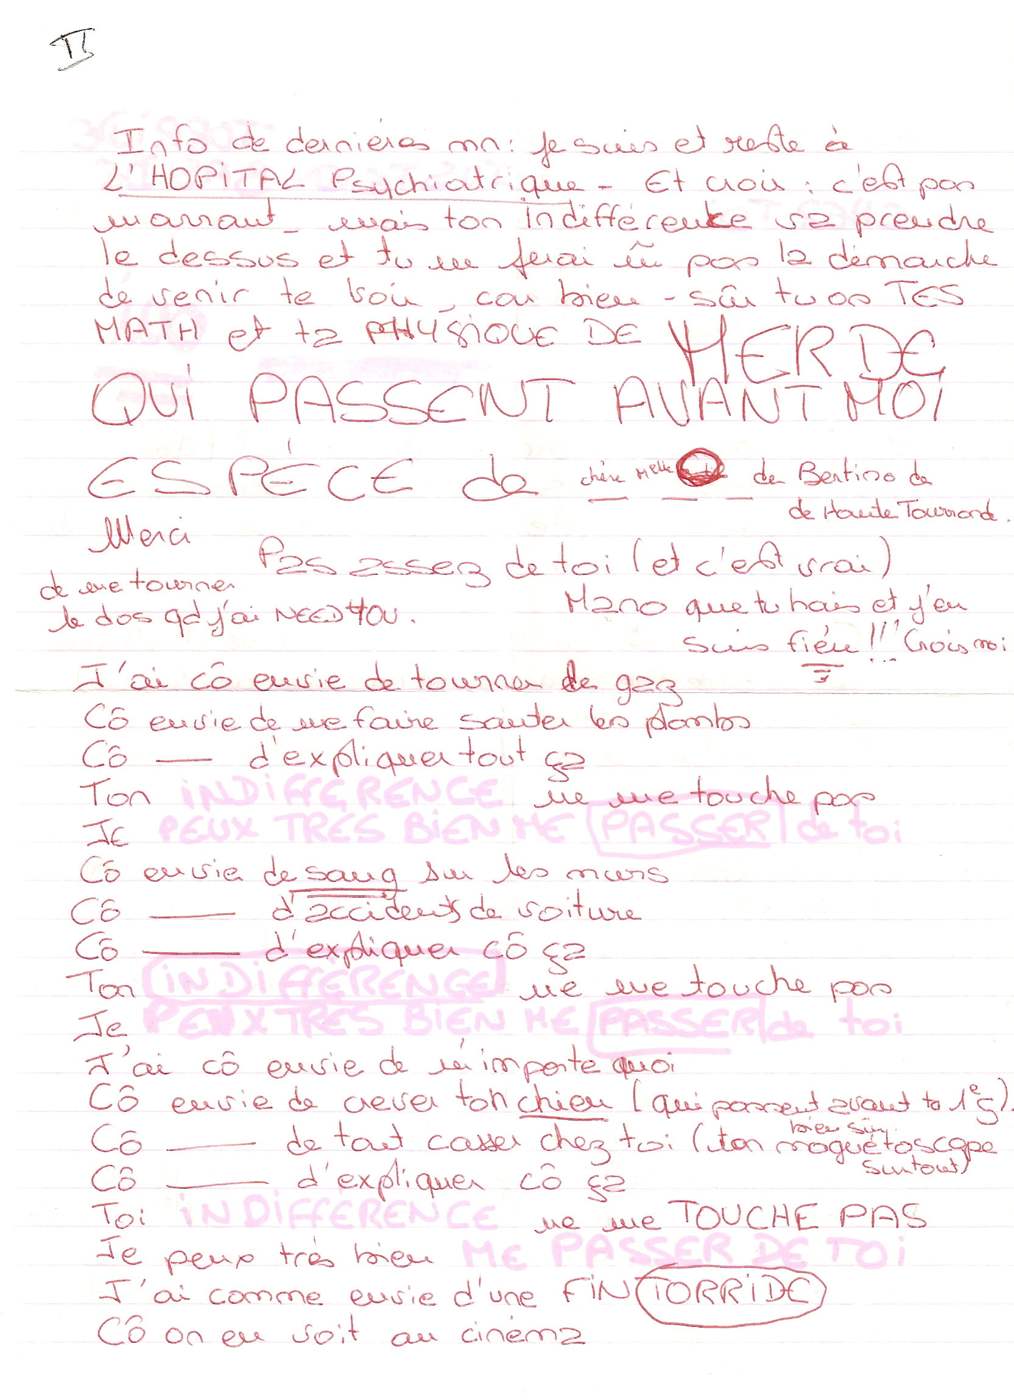 II
Info de dernières mn : je suis et reste à
L'HOPITAL Psychiatrique - Et crois : c'est pas
marrant - mais ton indifférence va prendre
le dessus et tu ne ferai pas la démarche
de venir te voir, car bien-sûr tu as TES
MATH et ta PHYSIQUE DE MERDE
QUI PASSENT AVANT MOI
ESPÈCE de chère Melle de Bertino de
de Haute Tourronde.
Merci
de me tourner
le dos qd j'ai NEED YOU.
Pas assez de toi (et c'est vrai)
Mano que tu hais et j'en
suis fière !!! Crois moi
J'ai cô envie de tourner le gaz
Cô envie de me faire sauter les plombs
Cô — d'expliquer tout ça
Ton INDIFFERENCE ne me touche pas
JE PEUX TRES BIEN ME PASSER de toi
Cô envie de sang sur les murs
Cô — d'accidents de voiture
Cô — d'expliquer cô ça
Ton INDIFFERENCE ne me touche pas
Je PEUX TRES BIEN ME PASSER de toi
J'ai cô envie de n'importe quoi
Cô envie de crever ton chien (qui passent avant ta 1e S).
Cô — de tout casser chez toi (ton magnétoscope
bien sûr
surtout)
Cô — d'expliquer cô ça
Toi INDIFFÉRENCE ne me TOUCHE PAS
Je peux très bien ME PASSER DE TOI
J'ai comme envie d'une FIN TORRIDE
Cô on en voit au cinéma